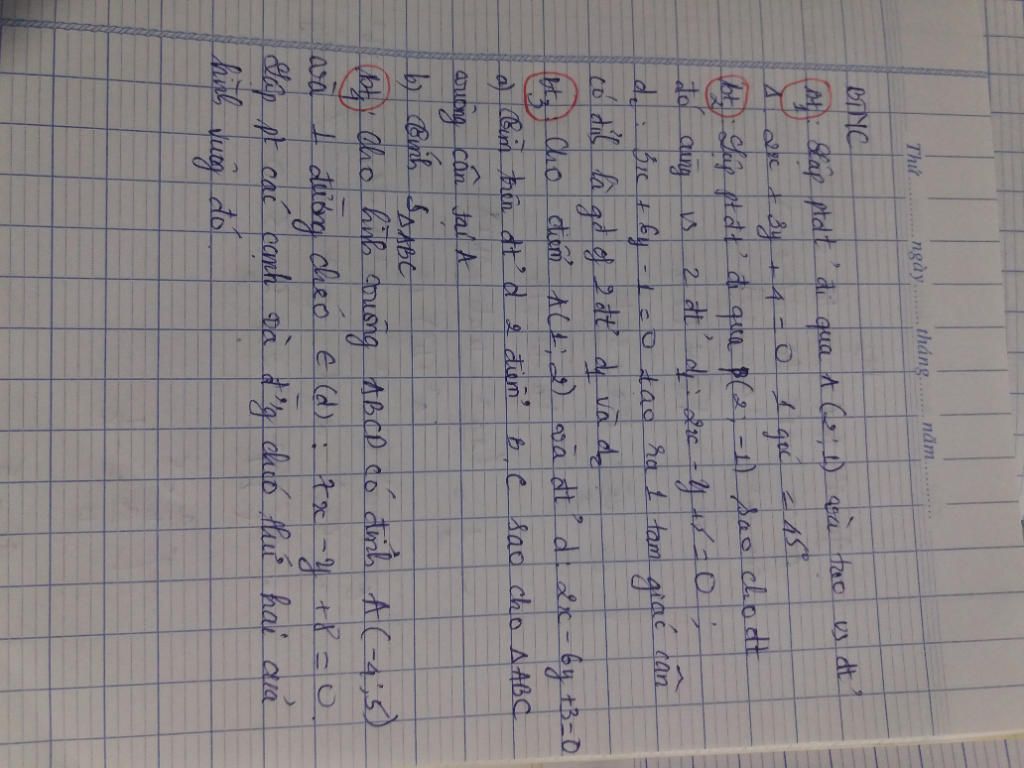 Thứ.......... ngày.......... tháng.......... năm..........
BTNC
bt1: Lập ptđt' đi qua A(2;1) và tạo vs đt'
Δ 2x + 3y + 4 = 0 1 góc = 45°
bt2: Lập ptđt' đi qua P(2;-1) sao cho đt
đó cùng vs 2 đt' d1: 2x - y + 5 = 0;
d2: 3x + 6y - 1 = 0 tạo ra 1 tam giác cân
có đỉnh là gđ of 2 đt' d1 và d2
bt3: Cho điểm A(1;2) và đt' d: 2x - 6y + 3 = 0
a) Tìm trên đt' d 2 điểm B, C sao cho ΔABC
vuông cân tại A
b) Tính SΔABC
bt4: Cho hình vuông ABCD có đỉnh A(-4;5)
và 1 đường chéo ∈ (d): 7x - y + 8 = 0
Lập pt các cạnh và đ' chéo thứ hai của
hình vuông đó.